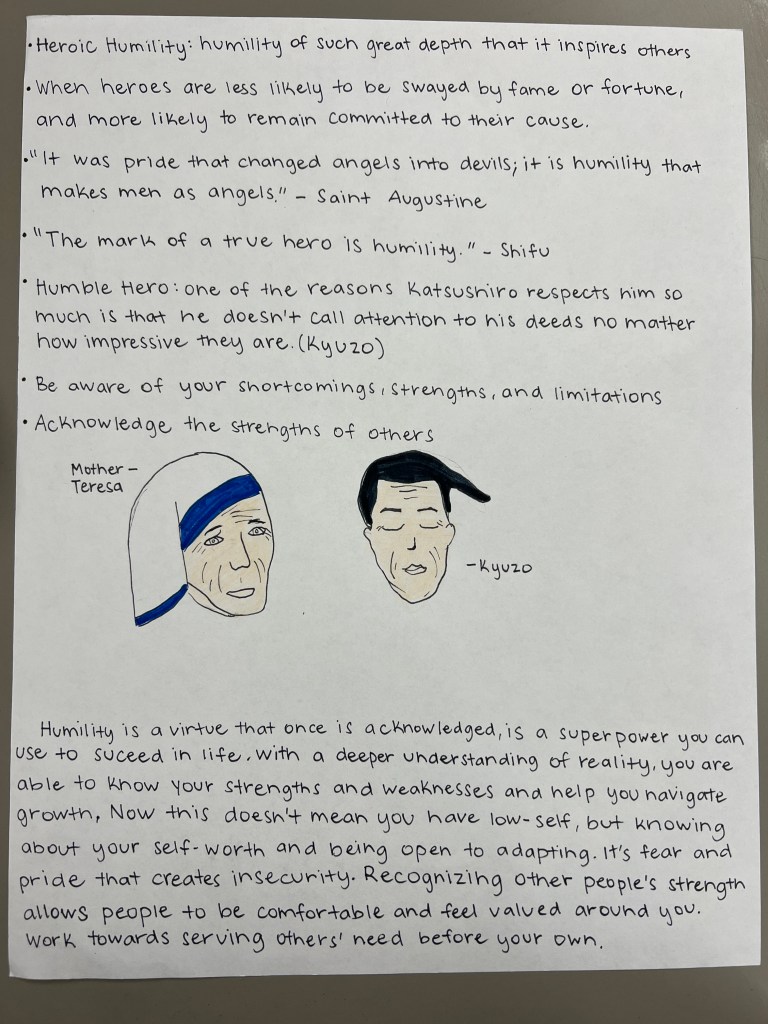 • Heroic Humility: humility of such great depth that it inspires others
• When heroes are less likely to be swayed by fame or fortune,
and more likely to remain committed to their cause.
• "It was pride that changed angels into devils; it is humility that
makes men as angels." - Saint Augustine
• "The mark of a true hero is humility." - Shifu
• Humble Hero: one of the reasons Katsushiro respects him so
much is that he doesn't call attention to his deeds no matter
how impressive they are. (Kyuzo)
• Be aware of your shortcomings, strengths, and limitations
• Acknowledge the strengths of others
Mother -
Teresa
- Kyuzo
Humility is a virtue that once is acknowledged, is a superpower you can
use to suceed in life. With a deeper understanding of reality, you are
able to know your strengths and weaknesses and help you navigate
growth, Now this doesn't mean you have low-self, but knowing
about your self-worth and being open to adapting. It's fear and
pride that creates insecurity. Recognizing other people's strength
allows people to be comfortable and feel valued around you.
Work towards serving others' need before your own.